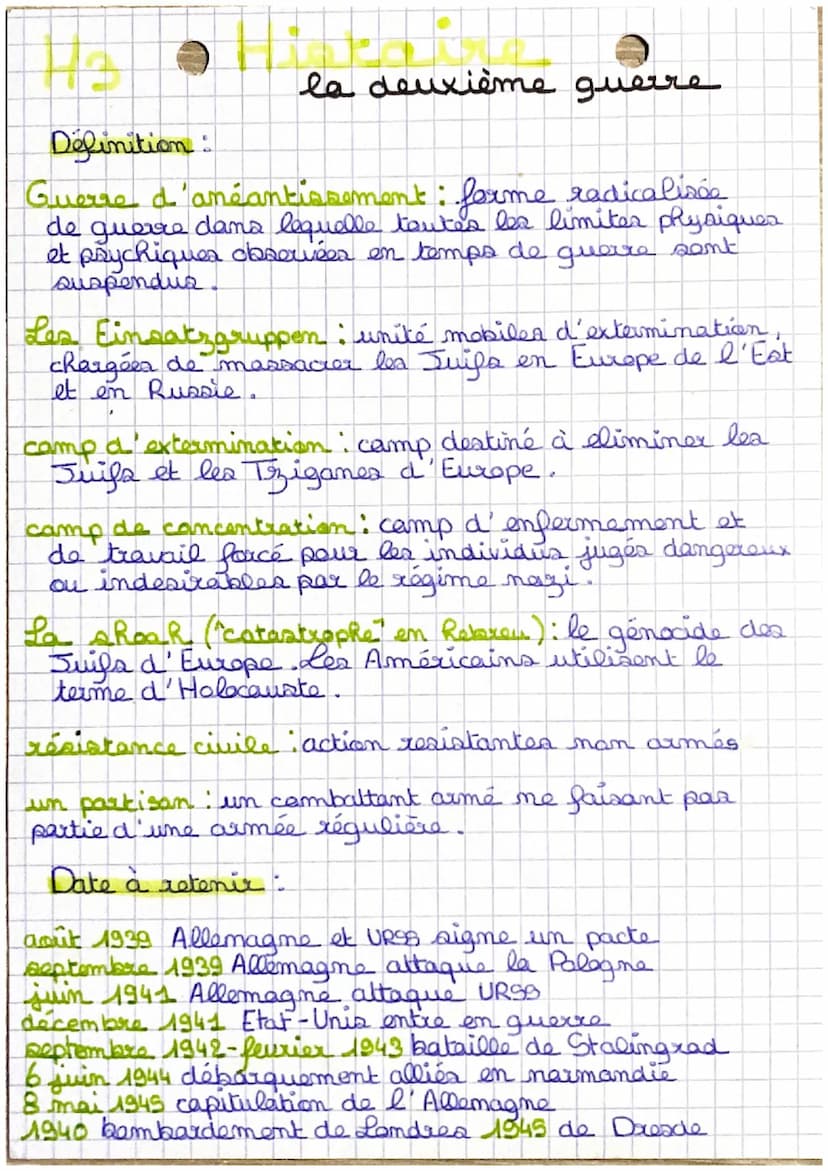 H3 Histoire
la deuxième guerre
Définition :
Guerre d'anéantissement : forme radicalisée
de guerre dans lequelle toutes les limites physiques
et psychiques observées en temps de guerre sont
suspendus.
Les Einsatzgruppen : unité mobiles d'extermination,
chargées de massacrer les Juifs en Europe de l'Est
et en Russie.
camp d'extermination : camp destiné à eliminer les
Juifs et les Tziganes d'Europe.
camp de concentration : camp d'enfermement et
de travail forcé pour les individus jugés dangereux
ou indesirables par le régime nazi.
La shoah ("catastrophe" en hebreu) : le génocide des
Juifs d'Europe. Les Américains utilisent le
terme d'Holocauste.
résistance civile : action resistantes non armés
un partisan : un combattant armé ne faisant pas
partie d'une armée régulière.
Date à retenir :
août 1939 Allemagne et URSS signe un pacte
septembre 1939 Allemagne attaque la Pologne
juin 1941 Allemagne attaque URSS
décembre 1941 Etat-Unis entre en guerre
septembre 1942-fevrier 1943 bataille de Stalingrad
6 juin 1944 débarquement alliés en normandie
8 mai 1945 capitulation de l'Allemagne
1940 bombardement de Londres 1945 de Dresde